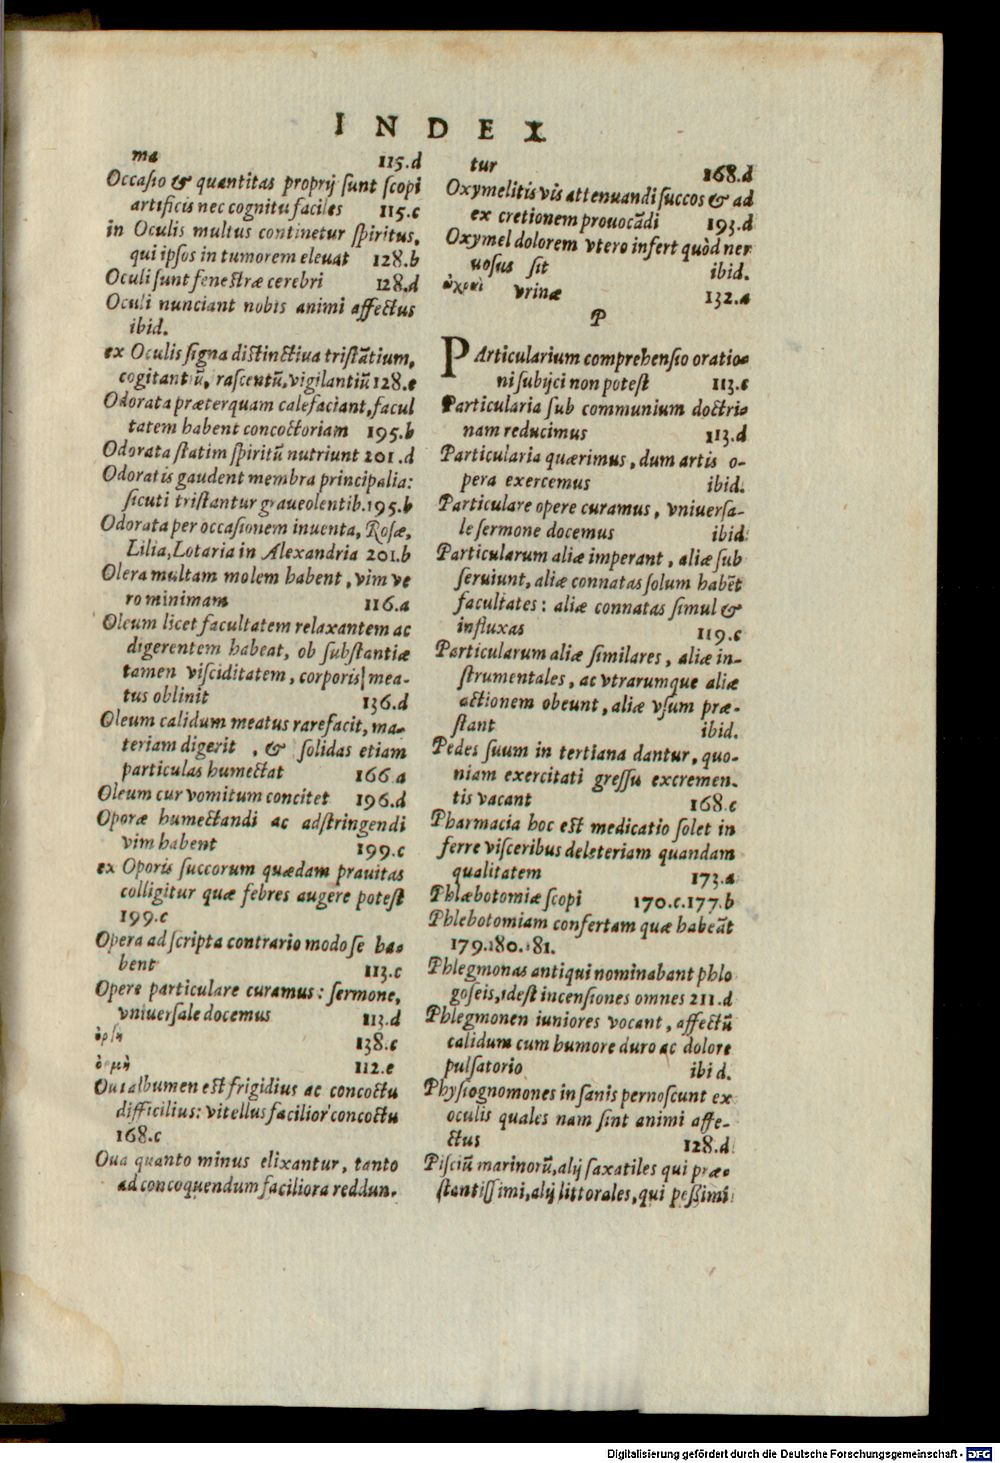 INDEX
ma 115.d
Occasio & quantitas proprij sunt scopi
artificis nec cognitu faciles 115.c
in Oculis multus continetur spiritus,
qui ipsos in tumorem eleuat 128.b
Oculi sunt fenestræ cerebri 128.d
Oculi nunciant nobis animi affectus
ibid.
ex Oculis signa distinctiua tristãtium,
cogitantiũ, rascentũ, vigilantiũ 128.e
Odorata præterquam calefaciant, facul
tatem habent concoctoriam 195.b
Odorata statim spiritũ nutriunt 201.d
Odoratis gaudent membra principalia:
sicuti tristantur graueolentib. 195.b
Odorata per occasionem inuenta, Rosæ,
Lilia, Lotaria in Alexandria 201.b
Olera multam molem habent, vim ve
ro minimam 116.a
Oleum licet facultatem relaxantem ac
digerentem habeat, ob substantiæ
tamen visciditatem, corporis mea-
tus oblinit 136.d
Oleum calidum meatus rarefacit, ma-
teriam digerit, & solidas etiam
particulas humectat 166.a
Oleum cur vomitum concitet 196.d
Oporæ humectandi ac adstringendi
vim habent 199.c
ex Oporis succorum quædam prauitas
colligitur quæ febres augere potest
199.c
Opera ad scripta contrario modo se ha-
bent 113.c
Opere particulare curamus: sermone,
vniuersale docemus 113.d
138.c
112.e
Oui albumen est frigidius ac concoctu
difficilius: vitellus facilior concoctu
168.c
Oua quanto minus elixantur, tanto
ad concoquendum faciliora reddun-
tur 168.d
Oxymelitis vis attenuandi succos & ad
ex cretionem prouocãdi 193.d
Oxymel dolorem vtero infert quòd ner
uosus sit ibid.
vrinæ 132.a
P
PArticularium comprehensio oratio-
ni subijci non potest 113.c
Particularia sub communium doctri-
nam reducimus 113.d
Particularia quærimus, dum artis o-
pera exercemus ibid.
Particulare opere curamus, vniuersa-
le sermone docemus ibid
Particularum aliæ imperant, aliæ sub
seruiunt, aliæ connatas solum habẽt
facultates: aliæ connatas simul &
influxas 119.c
Particularum aliæ similares, aliæ in-
strumentales, ac vtrarumque aliæ
actionem obeunt, aliæ vsum præ-
stant ibid.
Pedes suum in tertiana dantur, quo-
niam exercitati gressu excremen-
tis vacant 168.c
Pharmacia hoc est medicatio solet in
ferre visceribus deleteriam quandam
qualitatem 173.a
Phlæbotomiæ scopi 170.c.177.b
Phlebotomiam confertam quæ habeãt
179.180.181.
Phlegmonas antiqui nominabant phlo
goseis, idest incensiones omnes 211.d
Phlegmonen iuniores vocant, affectũ
calidum cum humore duro ac dolore
pulsatorio ibid.
Physiognomones in sanis pernoscunt ex
oculis quales nam sint animi affe-
ctus 128.d
Pisciũ marinorũ, alij saxatiles qui præ-
stantissimi, alij littorales, qui peßimi
Digitalisierung gefördert durch die Deutsche Forschungsgemeinschaft - DFG